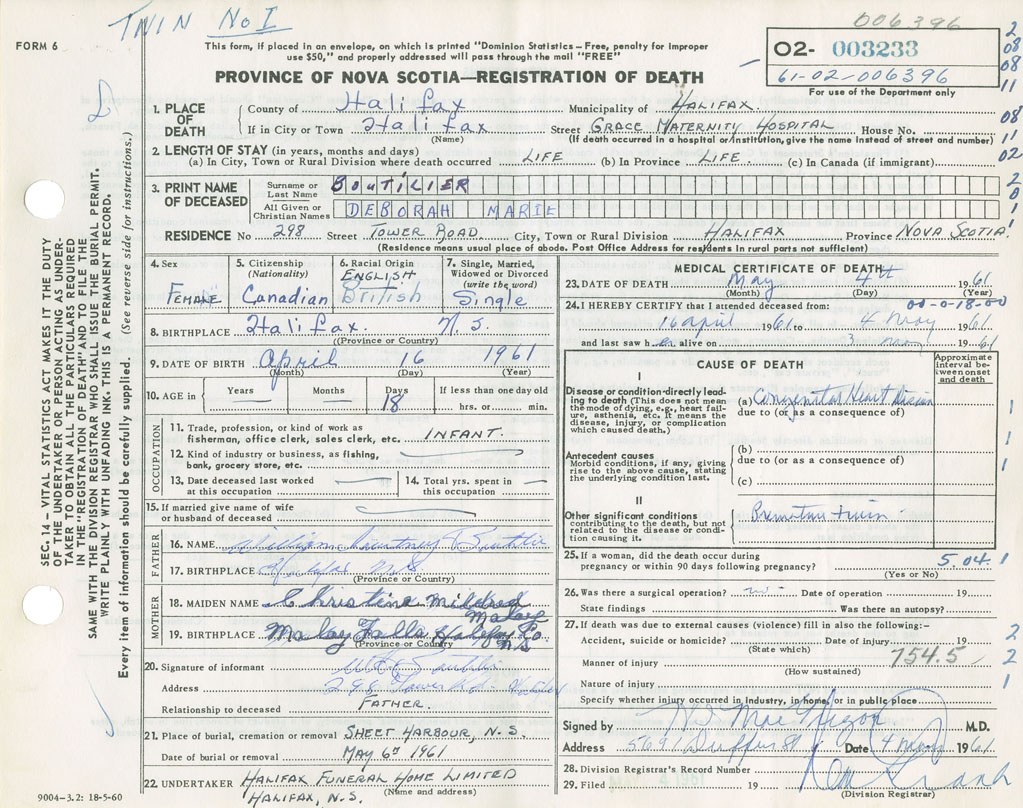 TWIN No I
006396
FORM 6
This form, if placed in an envelope, on which is printed "Dominion Statistics – Free, penalty for improper
use $50," and properly addressed will pass through the mail "FREE"
02- 003233
61-02-006396
For use of the Department only
PROVINCE OF NOVA SCOTIA—REGISTRATION OF DEATH
1. PLACE OF DEATH
County of Halifax Municipality of HALIFAX.
If in City or Town Halifax Street GRACE MATERNITY HOSPITAL House No.
(Name) (If death occurred in a hospital or institution, give the name instead of street and number)
2. LENGTH OF STAY (in years, months and days)
(a) In City, Town or Rural Division where death occurred LIFE (b) In Province LIFE (c) In Canada (if immigrant)
3. PRINT NAME OF DECEASED
Surname or Last Name BOUTILIER
All Given or Christian Names DEBORAH MARIE
RESIDENCE No 298 Street TOWER ROAD City, Town or Rural Division HALIFAX Province NOVA SCOTIA.
(Residence means usual place of abode. Post Office Address for residents in rural parts not sufficient)
4. Sex FEMALE
5. Citizenship (Nationality) Canadian
6. Racial Origin ENGLISH British
7. Single, Married, Widowed or Divorced (write the word) Single
8. BIRTHPLACE Halifax. N.S.
(Province or Country)
9. DATE OF BIRTH April 16 1961
(Month) (Day) (Year)
10. AGE in Years Months Days 18 If less than one day old
hrs. or min.
OCCUPATION
11. Trade, profession, or kind of work as
fisherman, office clerk, sales clerk, etc. INFANT.
12. Kind of industry or business, as fishing,
bank, grocery store, etc.
13. Date deceased last worked
at this occupation
14. Total yrs. spent in
this occupation
15. If married give name of wife
or husband of deceased
FATHER
16. NAME
17. BIRTHPLACE Halifax N.S.
(Province or Country)
MOTHER
18. MAIDEN NAME Christine Mildred
Malay
19. BIRTHPLACE Malay Falls Halifax Co
N.S
(Province or Country)
20. Signature of informant
Address 298 Tower Rd - Halifax
Relationship to deceased FATHER.
21. Place of burial, cremation or removal SHEET HARBOUR, N.S.
Date of burial or removal MAY 6th 1961
22. UNDERTAKER HALIFAX FUNERAL HOME LIMITED
HALIFAX, N.S. (Name and address)
9004-3.2: 18-5-60
MEDICAL CERTIFICATE OF DEATH
23. DATE OF DEATH May 4th 1961
(Month) (Day) (Year)
24. I HEREBY CERTIFY that I attended deceased from: 00-0-18-00
16 april 1961 to 4 may 1961
and last saw her alive on 3 may 1961
CAUSE OF DEATH
Approximate interval between onset and death
I
Disease or condition directly leading to death (This does not mean the mode of dying, e.g., heart failure, asthenia, etc. It means the disease, injury, or complication which caused death.)
(a) Congenital Heart Disease
due to (or as a consequence of)
Antecedent causes
Morbid conditions, if any, giving rise to the above cause, stating the underlying condition last.
(b)
due to (or as a consequence of)
(c)
II
Other significant conditions
contributing to the death, but not related to the disease or condition causing it.
Premature twin
25. If a woman, did the death occur during
pregnancy or within 90 days following pregnancy? 5.04
(Yes or No)
26. Was there a surgical operation? no Date of operation 19
State findings Was there an autopsy?
27. If death was due to external causes (violence) fill in also the following:–
Accident, suicide or homicide? Date of injury 19
(State which)
754.5
Manner of injury
(How sustained)
Nature of injury
Specify whether injury occurred in industry, in home, or in public place
Signed by M.D.
Address 5691 Duffus St Date 4 May 1961
28. Division Registrar's Record Number
29. Filed MAY 4 1961 19
(Division Registrar)
SEC. 14 – VITAL STATISTICS ACT MAKES IT THE DUTY
OF THE UNDERTAKER OR PERSON ACTING AS UNDERTAKER
TO OBTAIN ALL THE PARTICULARS REQUIRED
IN THE "REGISTRATION OF DEATH" AND TO FILE THE
SAME WITH THE DIVISION REGISTRAR WHO SHALL ISSUE THE BURIAL PERMIT.
WRITE PLAINLY WITH UNFADING INK. THIS IS A PERMANENT RECORD.
Every item of information should be carefully supplied. (See reverse side for instructions.)
2
08
08
11
08
1
02
2
0
1
1
1
1
1
2
2
1